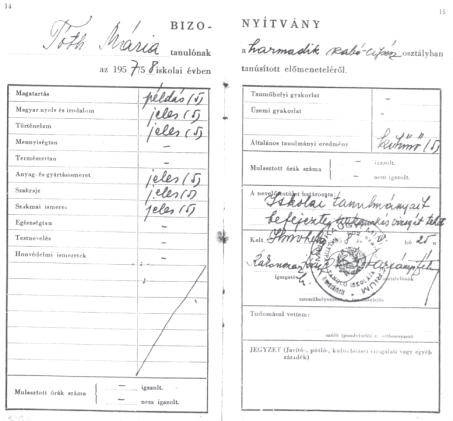 14
BIZO-
Tóth Mária tanulónak
az 1957/58 iskolai évben
Magatartás példás (5)
Magyar nyelv és irodalom jeles (5)
Történelem jeles (5)
Mennyiségtan –
Természettan –
Anyag- és gyártásismeret jeles (5)
Szakrajz jeles (5)
Szakmai ismeret jeles (5)
Egészségtan –
Testnevelés –
Honvédelmi ismeretek –
Mulasztott órák száma
– igazolt.
– nem igazolt.
15
NYÍTVÁNY
a harmadik szabó-cipész osztályban
tanúsított előmeneteléről.
Tanműhelyi gyakorlat –
Üzemi gyakorlat –
Általános tanulmányi eredmény kitünő (5)
Mulasztott órák száma
– igazolt.
– nem igazolt.
A nevelőtestület határozata
Iskolai tanulmányait
befejezte,
Kelt hó 25 n
igazgató
Tudomásul vettem:
szülő (gondviselő) v. otthonvezető
JEGYZET (Javító-, pótló-, különbözeti vizsgálati vagy egyéb
záradék)